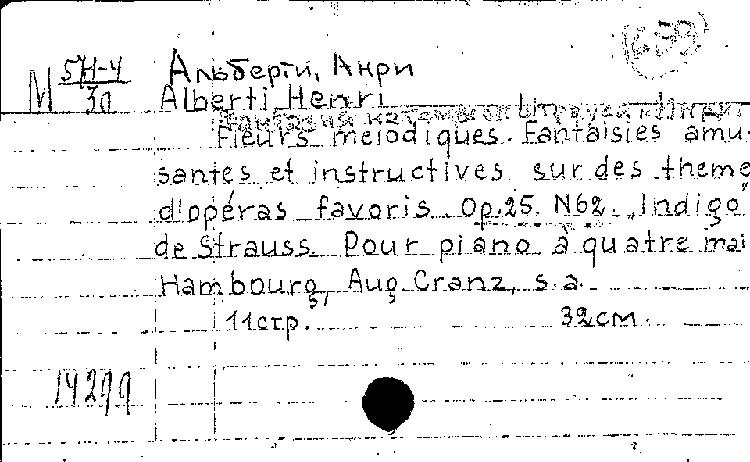 Альберти, Анри
М 5Н-4/30
Alberti Henri
Fleurs melodiques. Fantaisies amu-
santes et instructives sur des theme
d'opéras favoris. Op.25. N62. „Indigo"
de Strauss. Pour piano à quatre mai
Hambourg, Aug. Cranz, s.a.
11 стр. 32 см.
14299